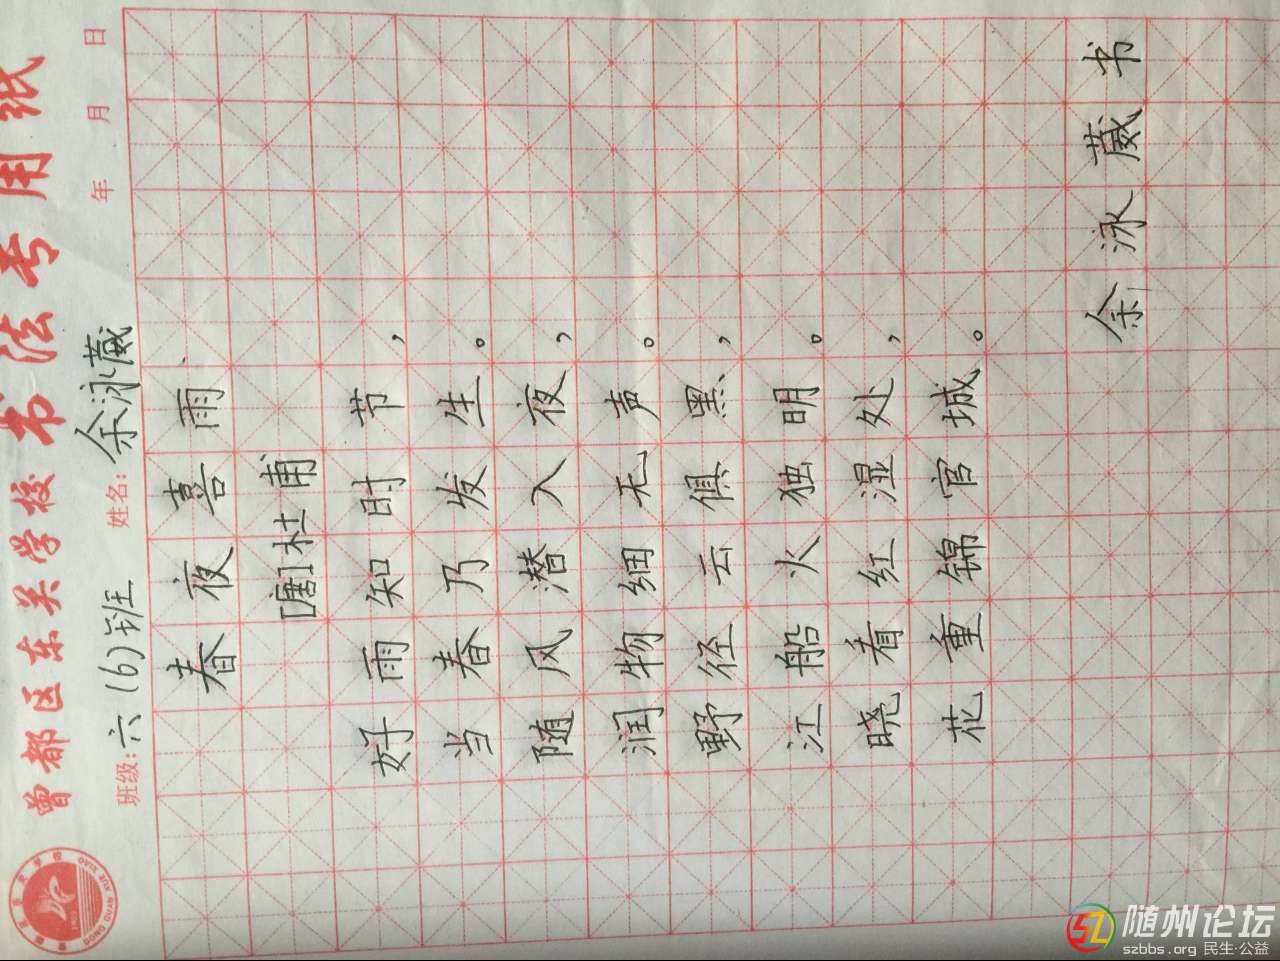 曾都区东关学校 书法专用纸
班级:六(6)班 姓名:余泳葳 年 月 日
春夜喜雨
[唐]杜甫
好雨知时节,
当春乃发生。
随风潜入夜,
润物细无声。
野径云俱黑,
江船火独明。
晓看红湿处,
花重锦官城。
余泳葳书
随州论坛
szbbs.org 民生·公益